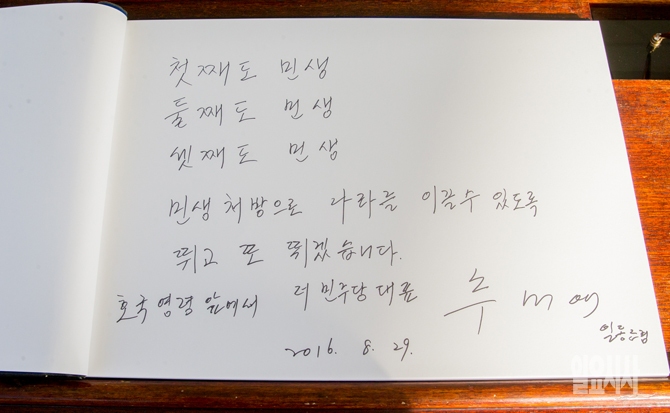 첫째도 민생
둘째도 민생
셋째도 민생
민생 처방으로 나라를 이끌수 있도록
뛰고 또 뛰겠습니다.
호국영령 앞에서 더 민주당 대표 추미애
일동
2016. 8. 29.
일요시사